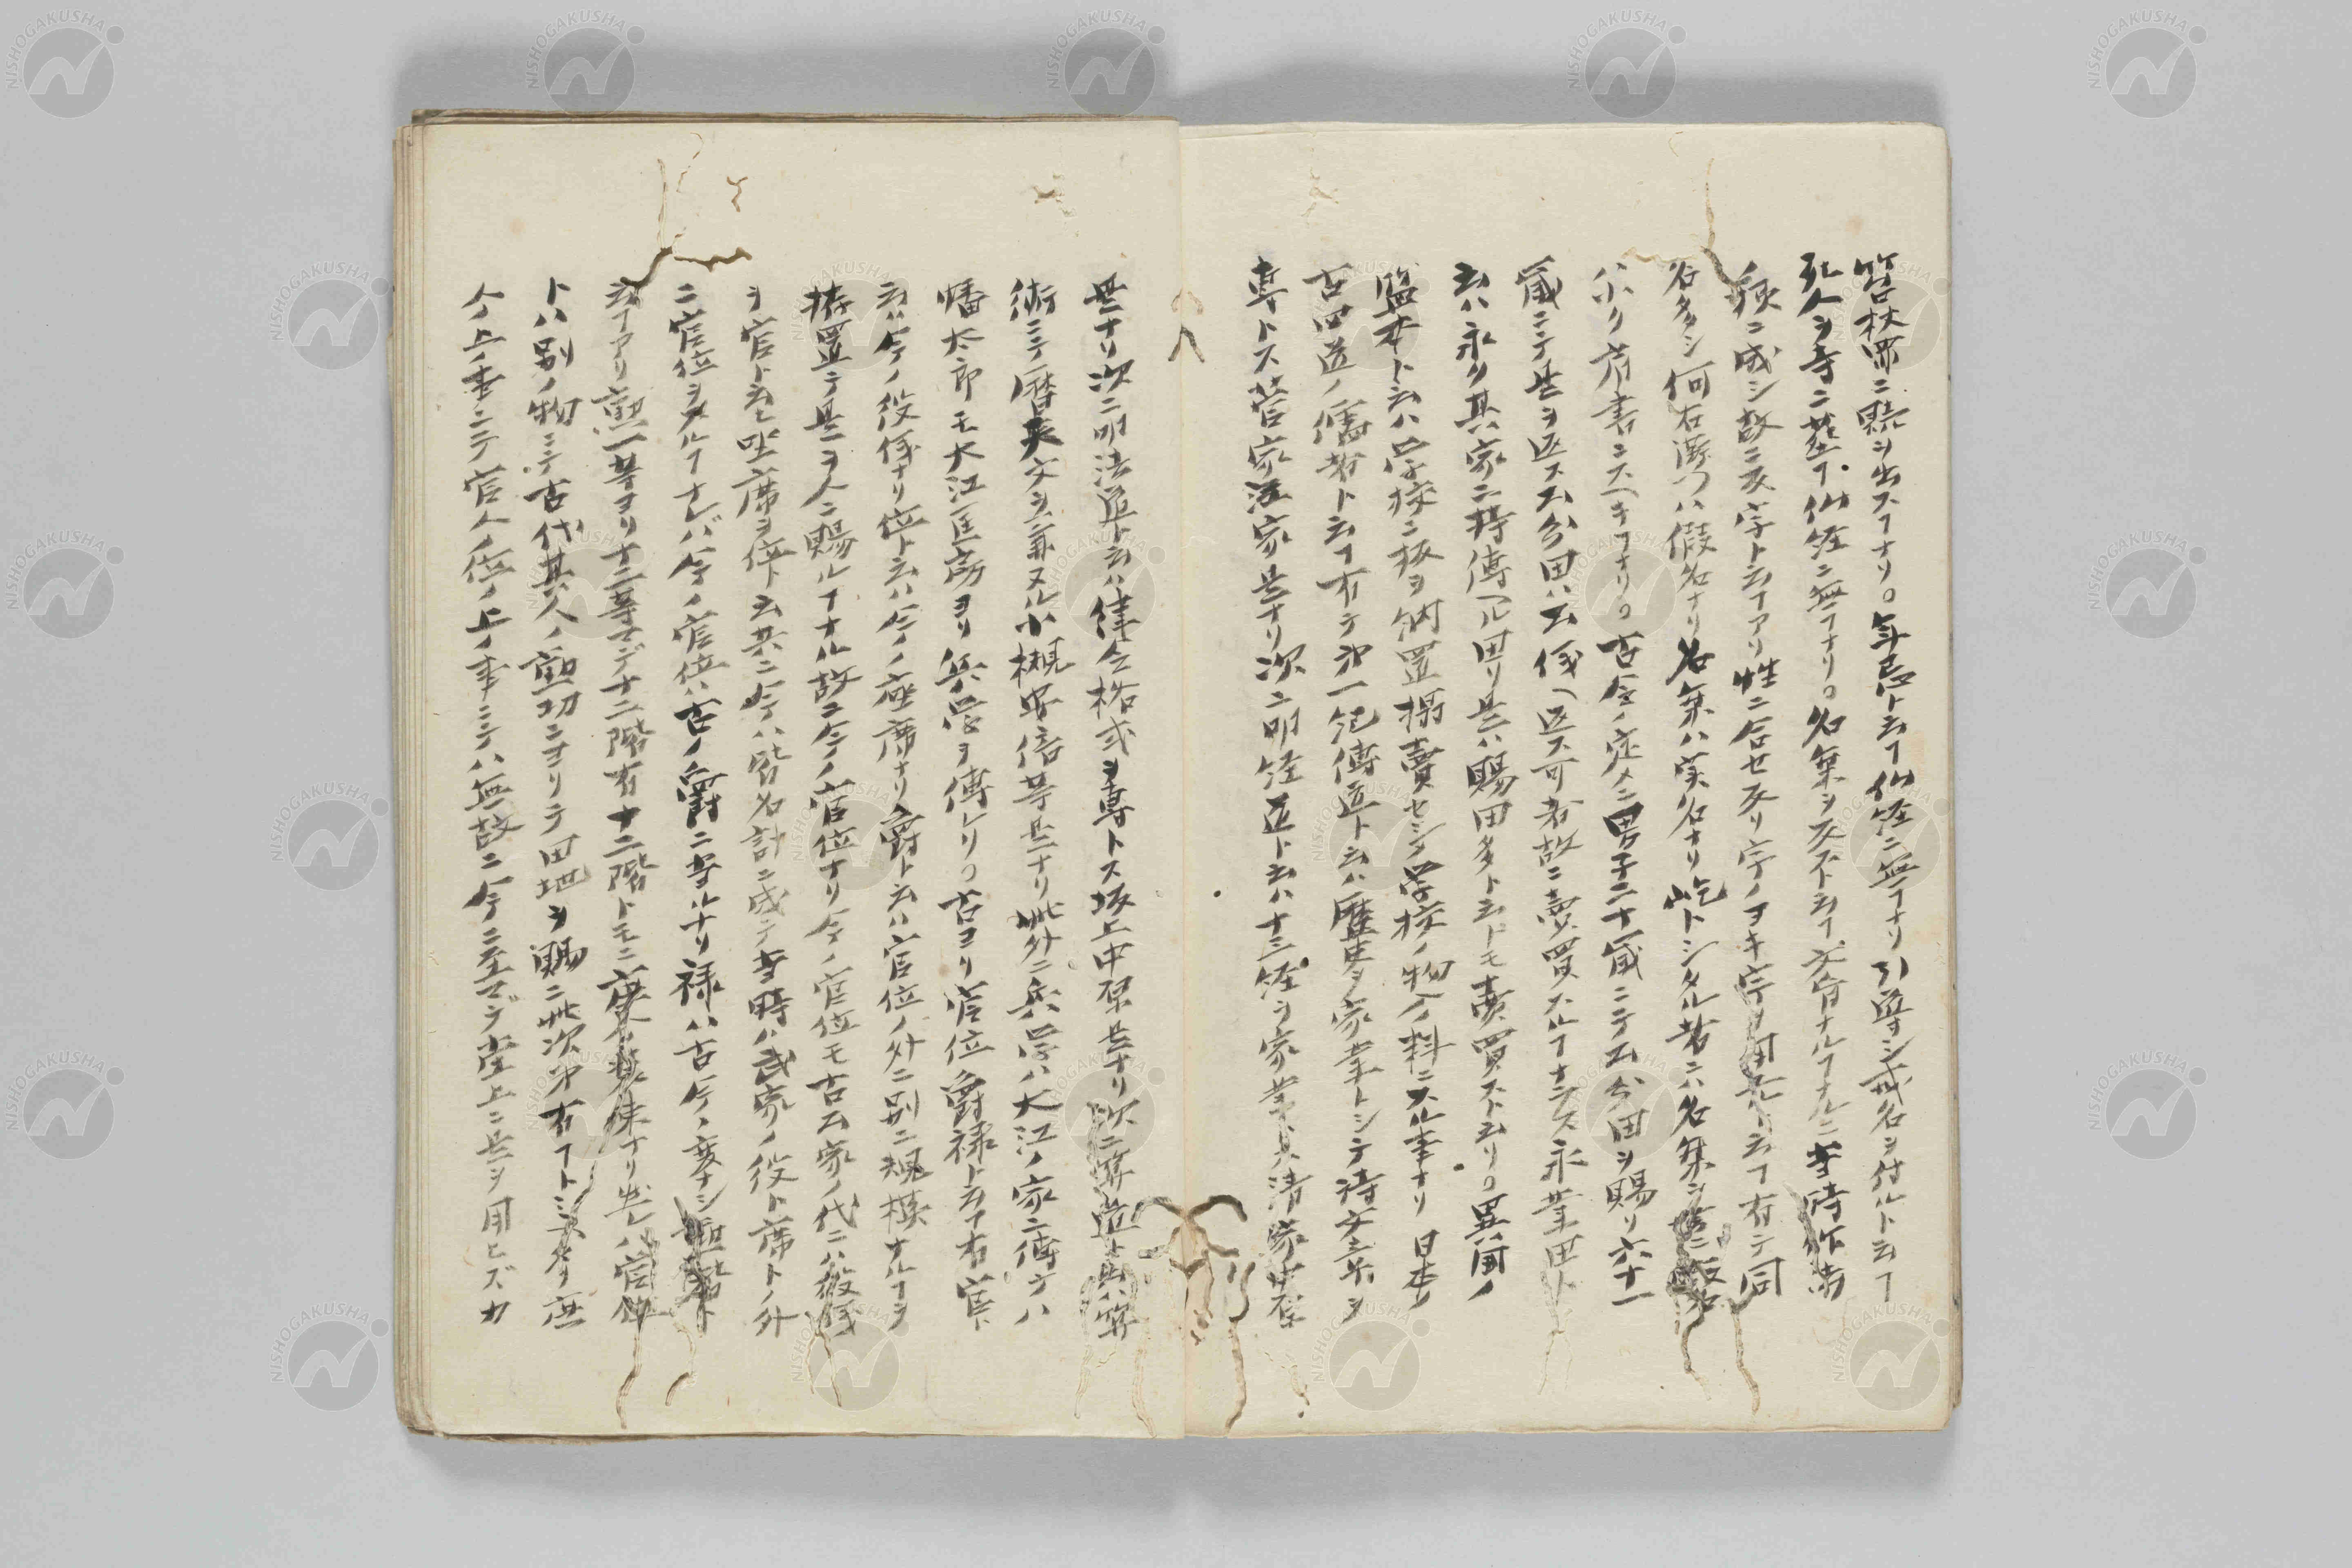 笞杖罪ニ贖ヲ出スヿナリ。年忌ト云ヿ仏経ニ無ヿナリ引導シ戒名ヲ付ルト云ヿ
死人ヲ寺ニ葬ヿ仏経ニ無ヿナリ。名乗ヲ反スト云ヿ文盲ナルヿナルニ当時
殊ニ成シ故ニ反字ト云ヿアリ性ニ合セ反リ字ノヨキ字ヲ用ルト云ヿ有テ同
名多シ何右衛門ハ假名ナリ名乗ハ実名ナリ屹トシタル者ニハ名乗シ
ハカリ肩書ニスヘキヿナリ。古令ノ定メニ男子二十歳ニテ公分田ヲ賜リ六十一
歳ニテ是ヲ返ス公分田ハ公儀ヘ返ス可者故ニ売買スルヿナラス永業田ト
云ハ永ク其家ニ持傳ヘル田リ是ハ賜田多ト云トモ売買ストム云リ。異国ノ
監本ト云ハ学校ニ板ヲ納置摺売セシメ学校ノ物入ノ料ニスル事ナリ 日本ノ
古四道ノ儒者ト云ヿ有テ第一紀傳道ト云ハ歴史ヲ家業トシテ詩文章ヲ
専トス菅家江家是ナリ次ニ明経道ト云ハ十三経ヲ家業トス清家中原
是ナリ次ニ明法道ト云ハ律令格式ヲ専トス坂上中原是ナリ次ニ算道ト云ハ算
術ニテ暦天文ヲ兼ヌル小槻安倍等是ナリ此外ニ兵学ハ大江ノ家ニ傳テ八
幡太郎モ大江匡房ヨリ兵学ヲ傳レリ。古ヨリ官位爵禄ト云ヿ有官ト
云ハ今ノ役儀ナリ位ト云ハ今ノ座席ナリ爵ト云ハ官位ノ外ニ別ニ規模ナルヿヲ
拵置テ是ヲ人ニ賜ルヿナル故ニ今ノ官位ナリ今ノ官位モ古公家ノ代ニハ役儀
ヲ官ト云ヒ坐席ヲ位ト云共ニ今ハ皆名計ニ成テ当時ハ武家ノ役ト席トノ外
ニ官位ヲスルヿナレバ今ノ官位ハ古ノ爵ニ当ルナリ禄ハ古今ノ変ナシ勲階ト
云ヿアリ勲一等ヨリ十二等マデ十二階有十二階トモニ
トハ別ノ物ニテ古代其人ノ勲功ニヨリテ田地ヲ賜ニ此次第有ヿト見タリ
今上ノ事ニテ官人ノ位ノ上ノ事ニテハ無故ニ今ニ至マデ堂上ニ是ヲ用ヒズカ